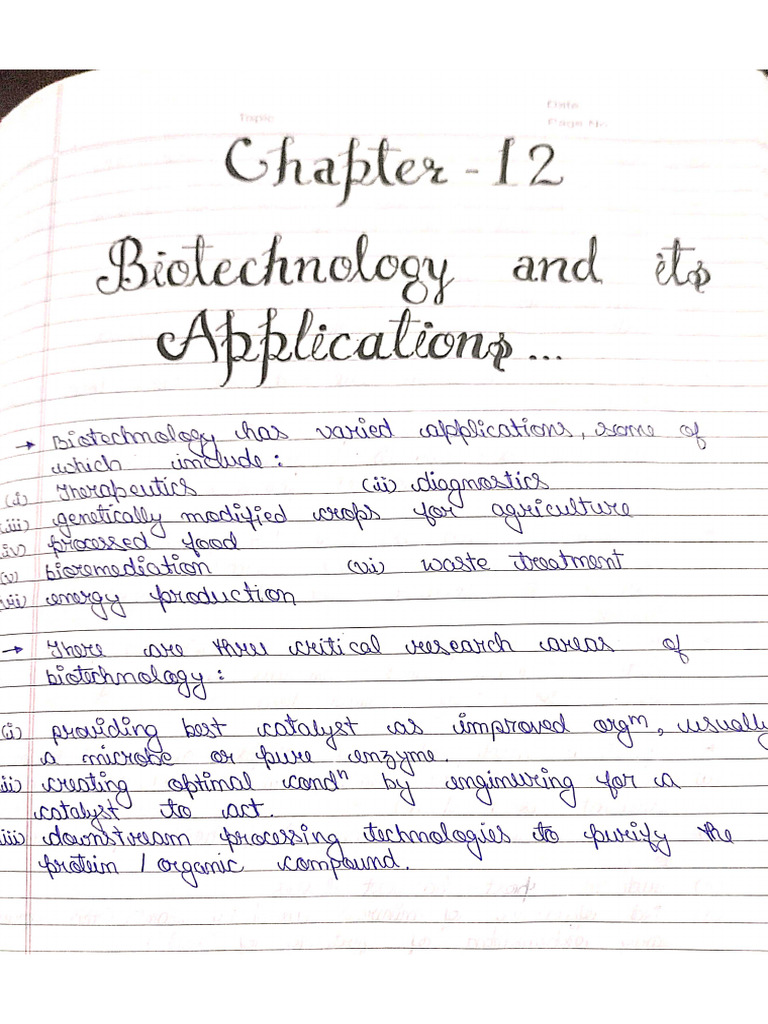 Topic
Date
Page No.
Chapter - 12
Biotechnology and its
Applications...
→ Biotechnology has varied applications, some of
which include:
(i) Therapeutics (ii) diagnostics
(iii) genetically modified crops for agriculture
(iv) processed food
(v) bioremediation (vi) waste treatment
(vii) energy production
→ There are three critical research areas of
biotechnology:
(i) providing best catalyst as improved orgᵐ, usually
a microbe or pure enzyme.
(ii) creating optimal condⁿ by engineering for a
catalyst to act.
(iii) downstream processing technologies to purify the
protein / organic compound.